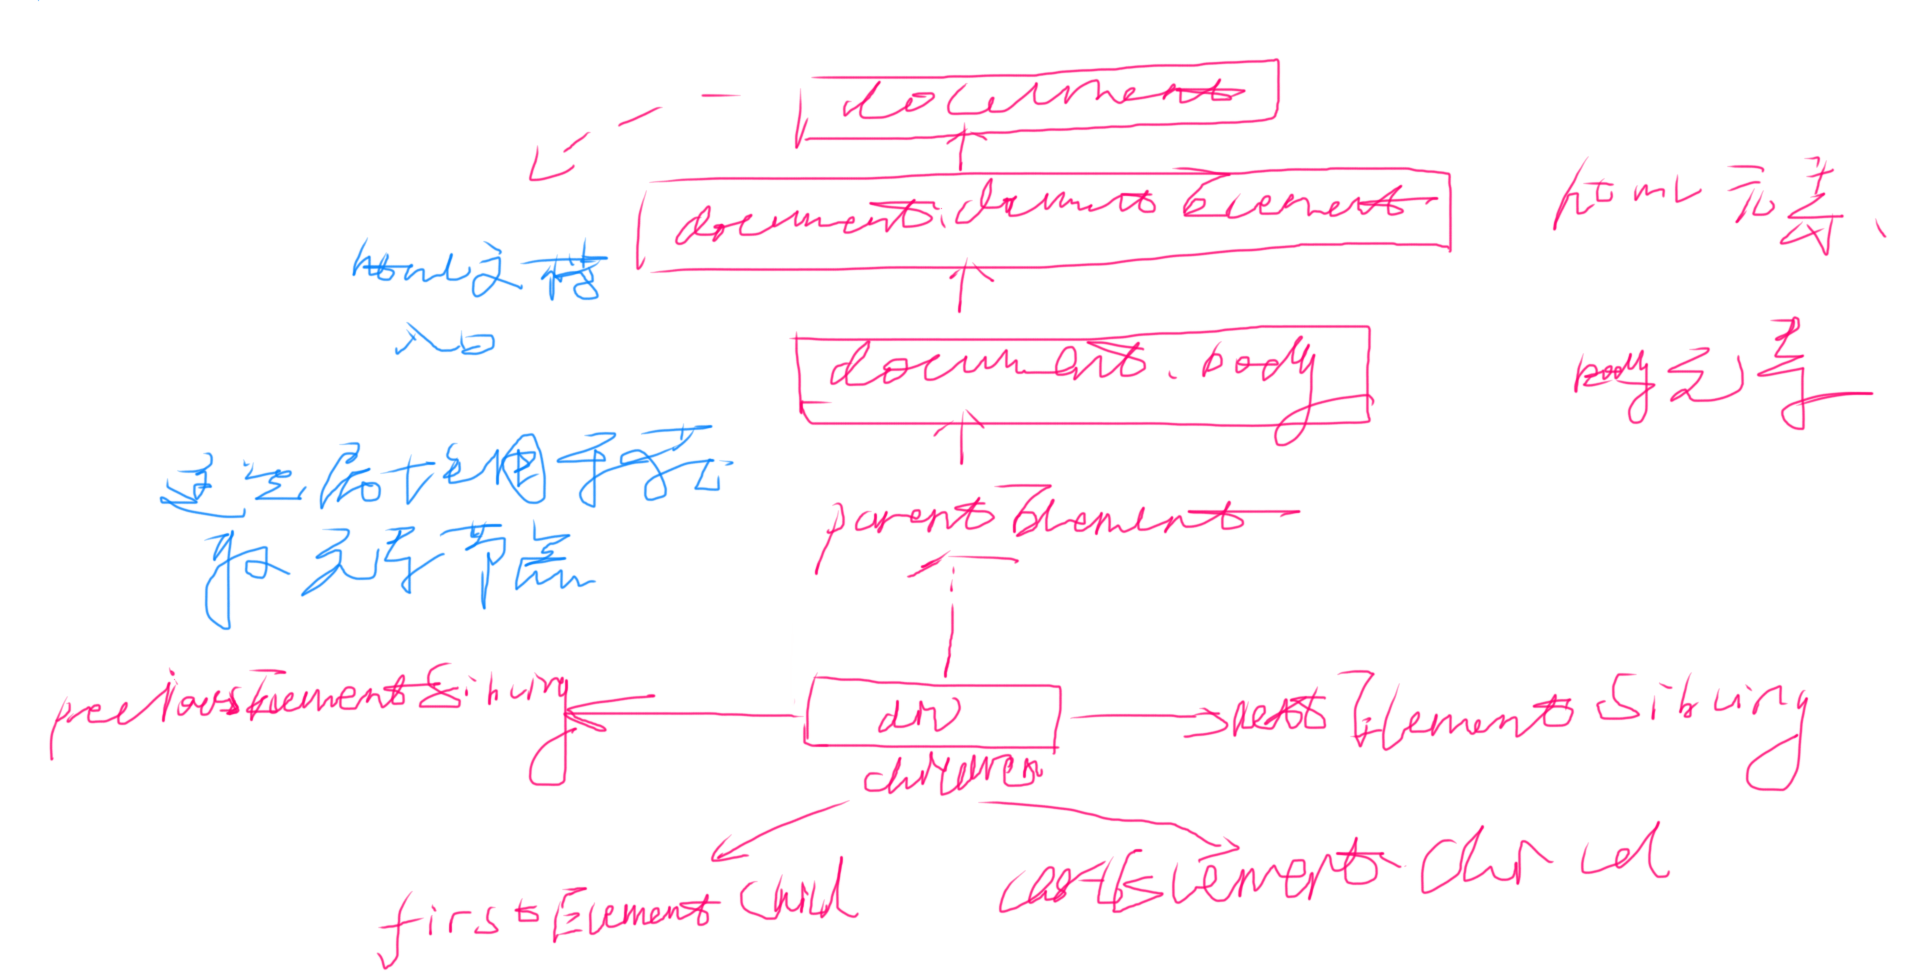 document
document.documentElement
html元素、
html文档
入口
document.body
body元素
这些属性用于获
取元素节点
parentElement
previousElementSibling
div
nextElementSibling
children
firstElementChild
lastElementChild